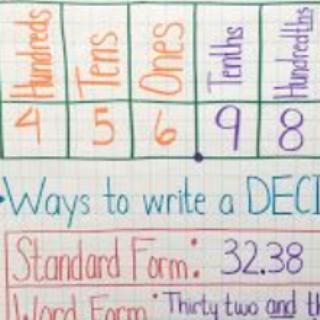 Hundreds Tens Ones Tenths Hundredths
4 5 6 . 9 8
Ways to write a DECI
Standard Form: 32.38
Word Form: Thirty two and th